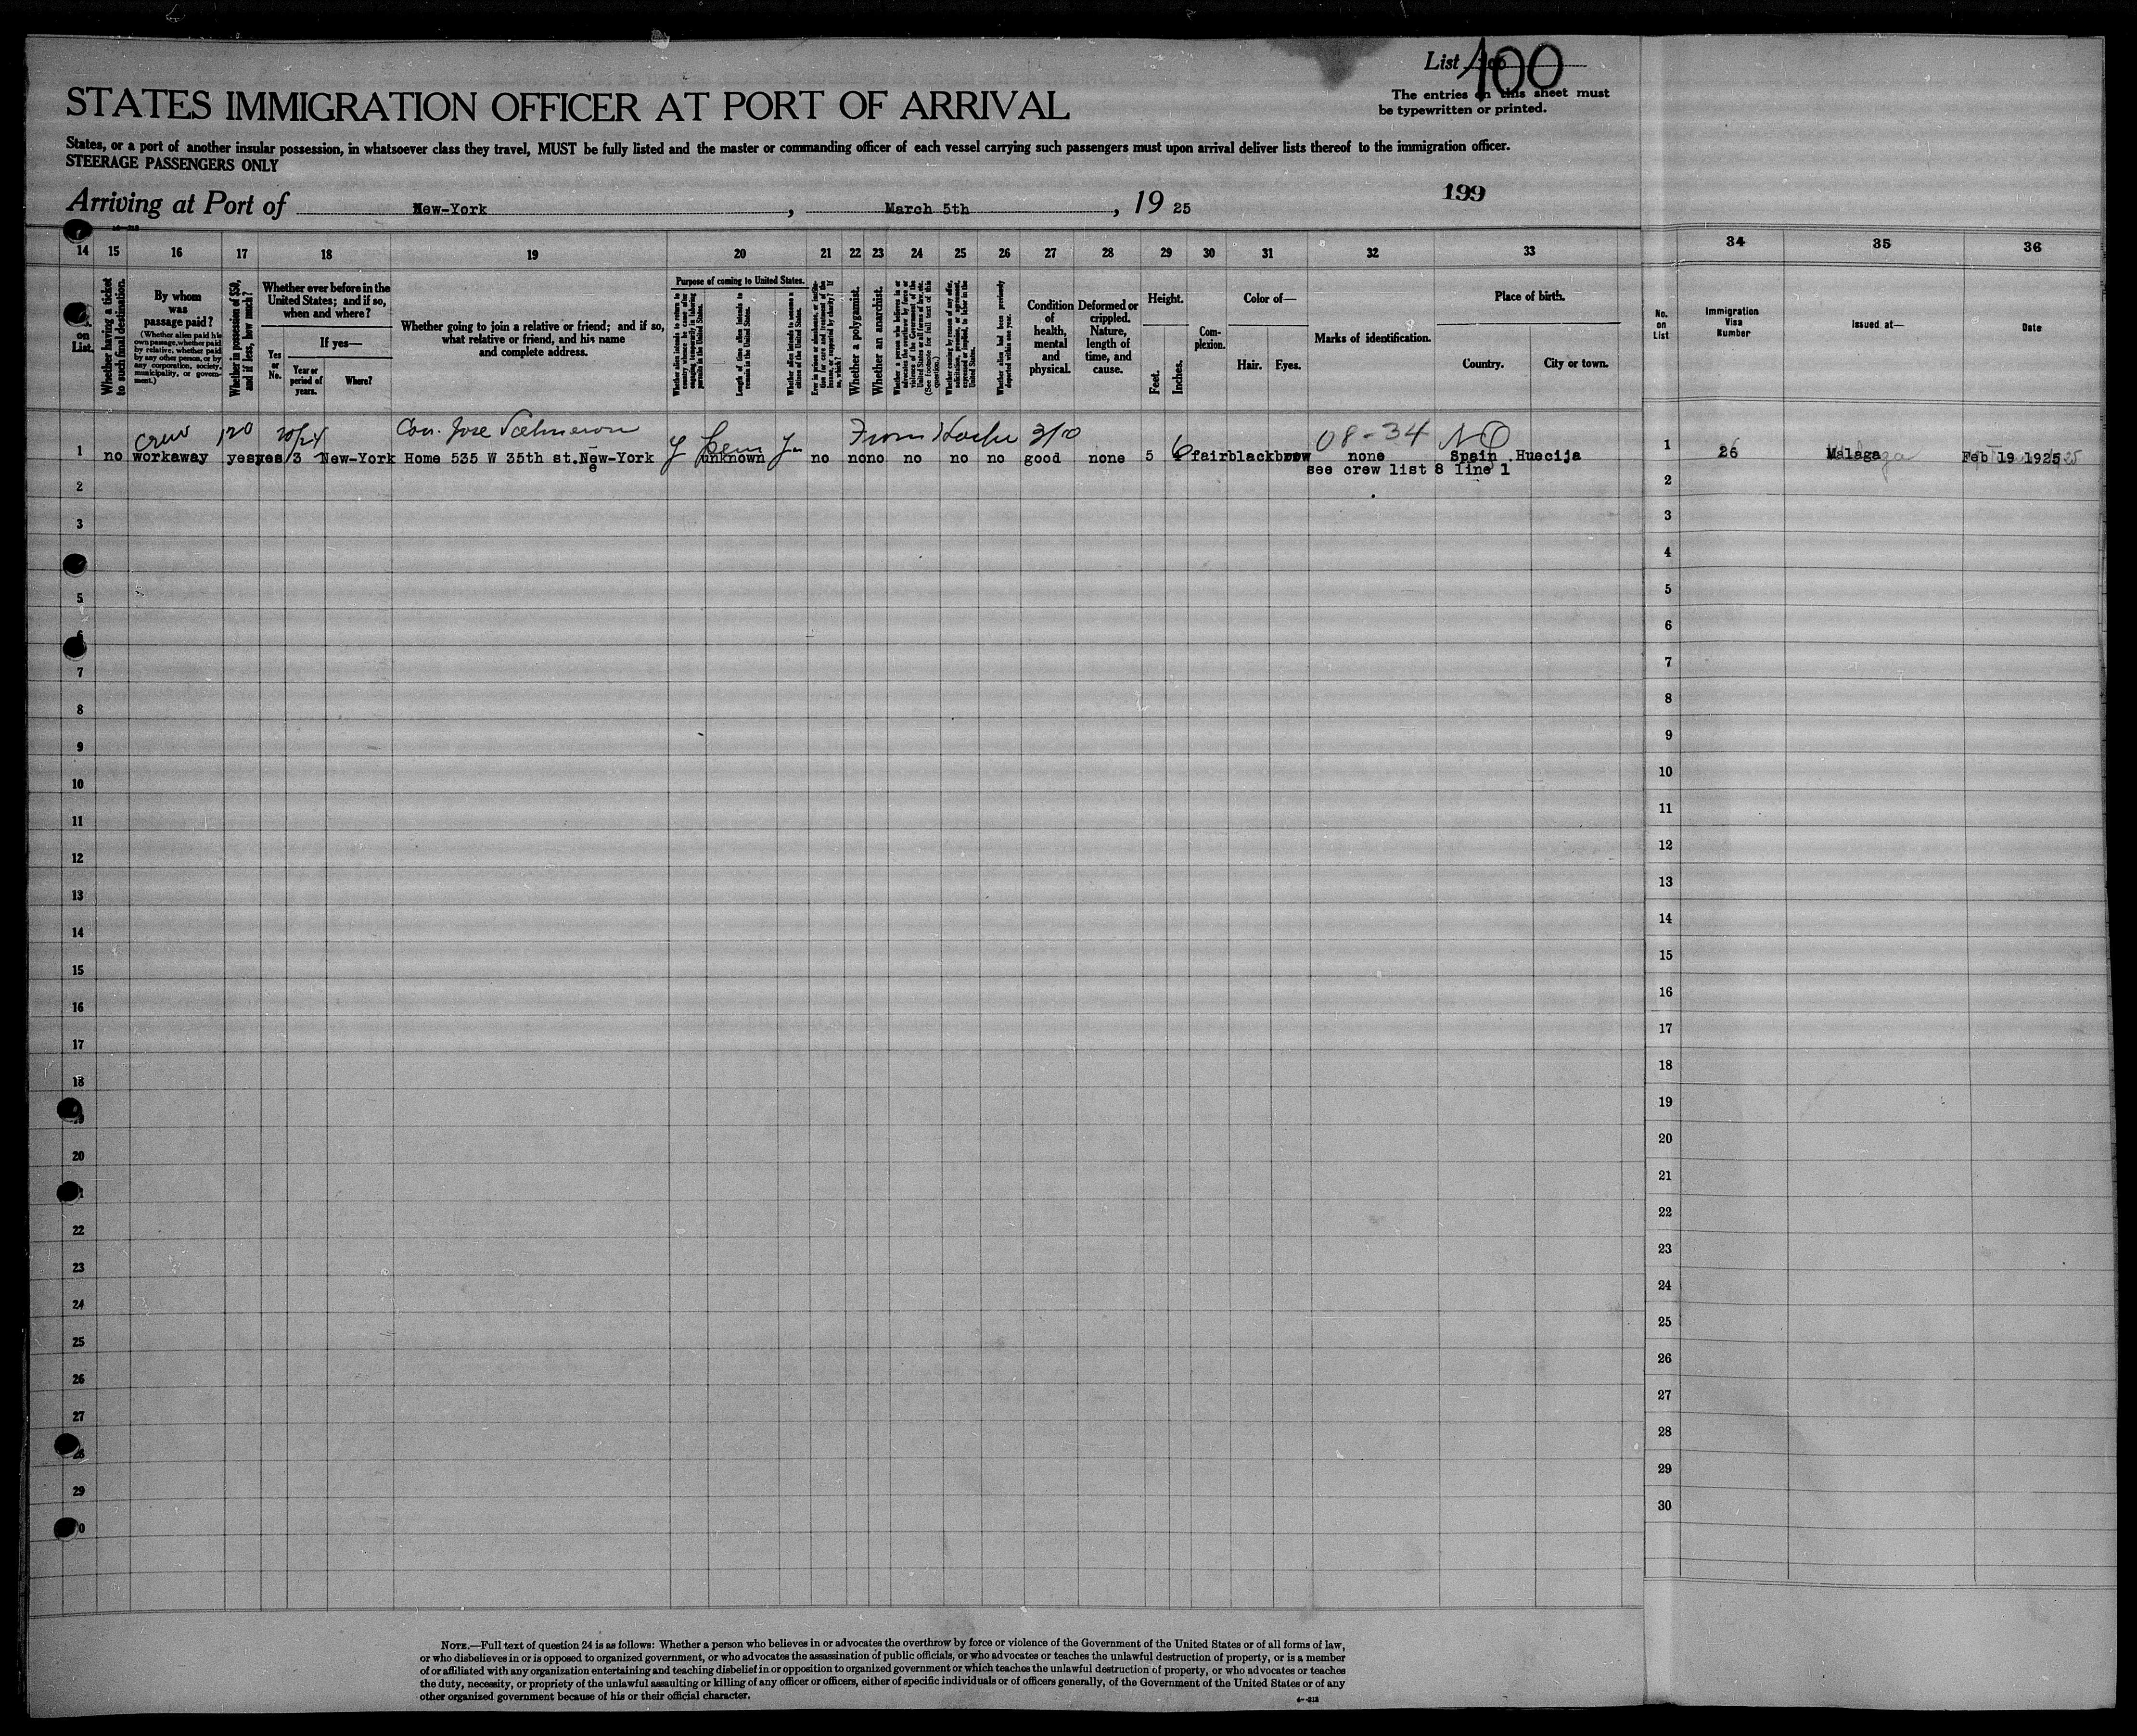 List 100
The entries on this sheet must
be typewritten or printed.
STATES IMMIGRATION OFFICER AT PORT OF ARRIVAL
States, or a port of another insular possession, in whatsoever class they travel, MUST be fully listed and the master or commanding officer of each vessel carrying such passengers must upon arrival deliver lists thereof to the immigration officer.
STEERAGE PASSENGERS ONLY
199
Arriving at Port of New-York, March 5th, 19 25
14 15 16 17 18 19 20 21 22 23 24 25 26 27 28 29 30 31 32 33 34 35 36
on List.
Whether having a ticket to such final destination.
By whom was passage paid?
(Whether alien paid his own passage, whether paid by relative, whether paid by any other person, or by any corporation, society, municipality, or government.)
Whether in possession of $50, and if less, how much?
Whether ever before in the United States; and if so, when and where?
Yes or No.
If yes—
Year or period of years.
Where?
Whether going to join a relative or friend; and if so, what relative or friend, and his name and complete address.
Purpose of coming to United States.
Whether alien intends to return to country whence he came after engaging temporarily in laboring pursuits in the United States.
Length of time alien intends to remain in the United States.
Whether alien intends to become a citizen of the United States.
Ever in prison or almshouse, or institution for care and treatment of the insane, or supported by charity? If so, which?
Whether a polygamist.
Whether an anarchist.
Whether a person who believes in or advocates the overthrow by force or violence of the Government of the United States or all forms of law, etc. (See footnote for full text of this question.)
Whether coming by reason of any offer, solicitation, promise, or agreement, expressed or implied, to labor in the United States.
Whether alien had been previously deported within one year.
Condition of health, mental and physical.
Deformed or crippled. Nature, length of time, and cause.
Height.
Feet.
Inches.
Complexion.
Color of—
Hair.
Eyes.
Marks of identification.
Place of birth.
Country.
City or town.
No. on List
Immigration Visa Number
Issued at—
Date
crew 120 Jose 3/10 08-34
1 no workaway yes yes 3 New-York Home 535 W 35th st. New-York unknown no no no no no no good none 5 6 fair black brow none Spain Huecija 1 26 Malaga Feb 19 1925
see crew list 8 line 1
2 2
3 3
4
5 5
6 6
7 7
8 8
9 9
10 10
11 11
12 12
13 13
14 14
15 15
16 16
17 17
18 18
19 19
20 20
21
22 22
23 23
24 24
25 25
26 26
27 27
28 28
29 29
30 30
NOTE.—Full text of question 24 is as follows: Whether a person who believes in or advocates the overthrow by force or violence of the Government of the United States or of all forms of law,
or who disbelieves in or is opposed to organized government, or who advocates the assassination of public officials, or who advocates or teaches the unlawful destruction of property, or is a member
of or affiliated with any organization entertaining and teaching disbelief in or opposition to organized government or which teaches the unlawful destruction of property, or who advocates or teaches
the duty, necessity, or propriety of the unlawful assaulting or killing of any officer or officers, either of specific individuals or of officers generally, of the Government of the United States or of any
other organized government because of his or their official character.